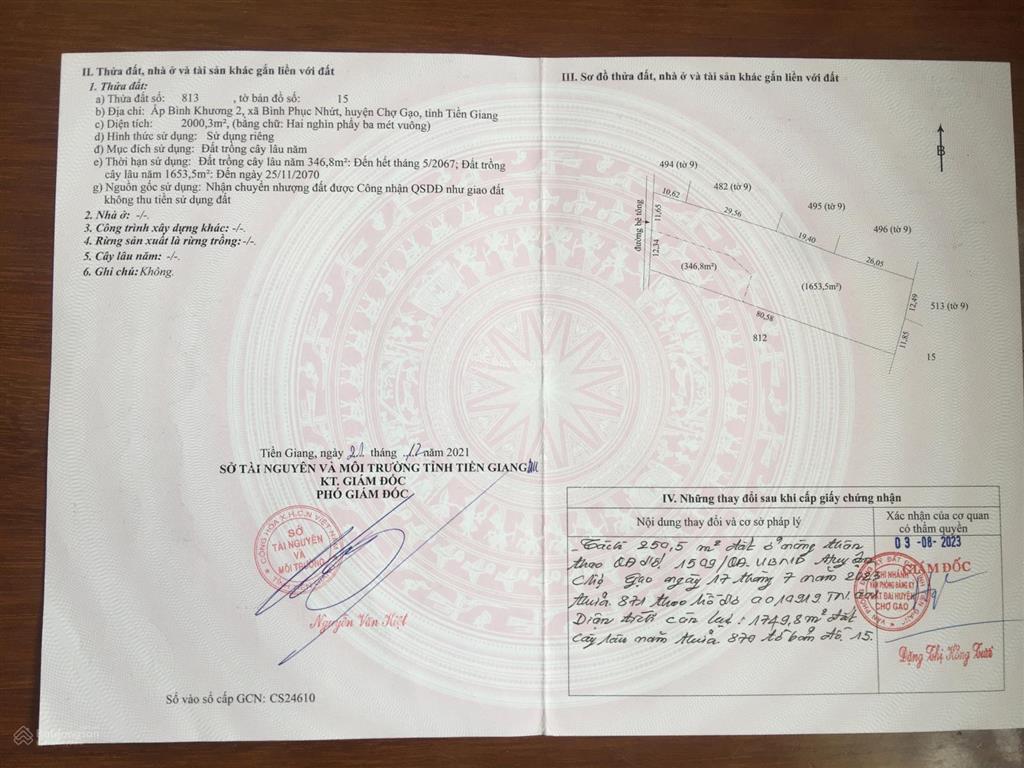 II. Thửa đất, nhà ở và tài sản khác gắn liền với đất
1. Thửa đất:
a) Thửa đất số: 813 , tờ bản đồ số: 15
b) Địa chỉ: Ấp Bình Khương 2, xã Bình Phục Nhứt, huyện Chợ Gạo, tỉnh Tiền Giang
c) Diện tích: 2000,3m², (bằng chữ: Hai nghìn phẩy ba mét vuông)
d) Hình thức sử dụng: Sử dụng riêng
đ) Mục đích sử dụng: Đất trồng cây lâu năm
e) Thời hạn sử dụng: Đất trồng cây lâu năm 346,8m²: Đến hết tháng 5/2067; Đất trồng
cây lâu năm 1653,5m²: Đến ngày 25/11/2070
g) Nguồn gốc sử dụng: Nhận chuyển nhượng đất được Công nhận QSDĐ như giao đất
không thu tiền sử dụng đất
2. Nhà ở: -/-.
3. Công trình xây dựng khác: -/-.
4. Rừng sản xuất là rừng trồng: -/-.
5. Cây lâu năm: -/-.
6. Ghi chú: Không.
Tiền Giang, ngày 21 tháng 12 năm 2021
SỞ TÀI NGUYÊN VÀ MÔI TRƯỜNG TỈNH TIỀN GIANG
KT. GIÁM ĐỐC
PHÓ GIÁM ĐỐC
CỘNG HÒA X.H.C.N VIỆT NAM
SỞ
TÀI NGUYÊN
VÀ
MÔI TRƯỜNG
Nguyễn Văn Kiệt
Số vào sổ cấp GCN: CS24610
III. Sơ đồ thửa đất, nhà ở và tài sản khác gắn liền với đất
B
494 (tờ 9)
482 (tờ 9)
495 (tờ 9)
496 (tờ 9)
513 (tờ 9)
đường bê tông
10,62
29,56
19,40
26,05
11,65
12,34
(346,8m²)
(1653,5m²)
12,49
11,85
80,58
812
15
IV. Những thay đổi sau khi cấp giấy chứng nhận
Nội dung thay đổi và cơ sở pháp lý
Xác nhận của cơ quan
có thẩm quyền
- Tách 250,5 m² đất ở nông thôn
theo QĐ số 1509/QĐ.UBND huyện
Chợ Gạo ngày 17 tháng 7 năm 2023
thửa 871 theo hồ sơ
Diện tích còn lại: 1749,8m² đất
cây lâu năm thửa 870 tờ bản đồ 15.
03-08-2023
GIÁM ĐỐC
CHI NHÁNH
VĂN PHÒNG ĐĂNG KÝ
ĐẤT ĐAI HUYỆN
CHỢ GẠO
Đặng Thị Hồng Tươi
Batdongsan